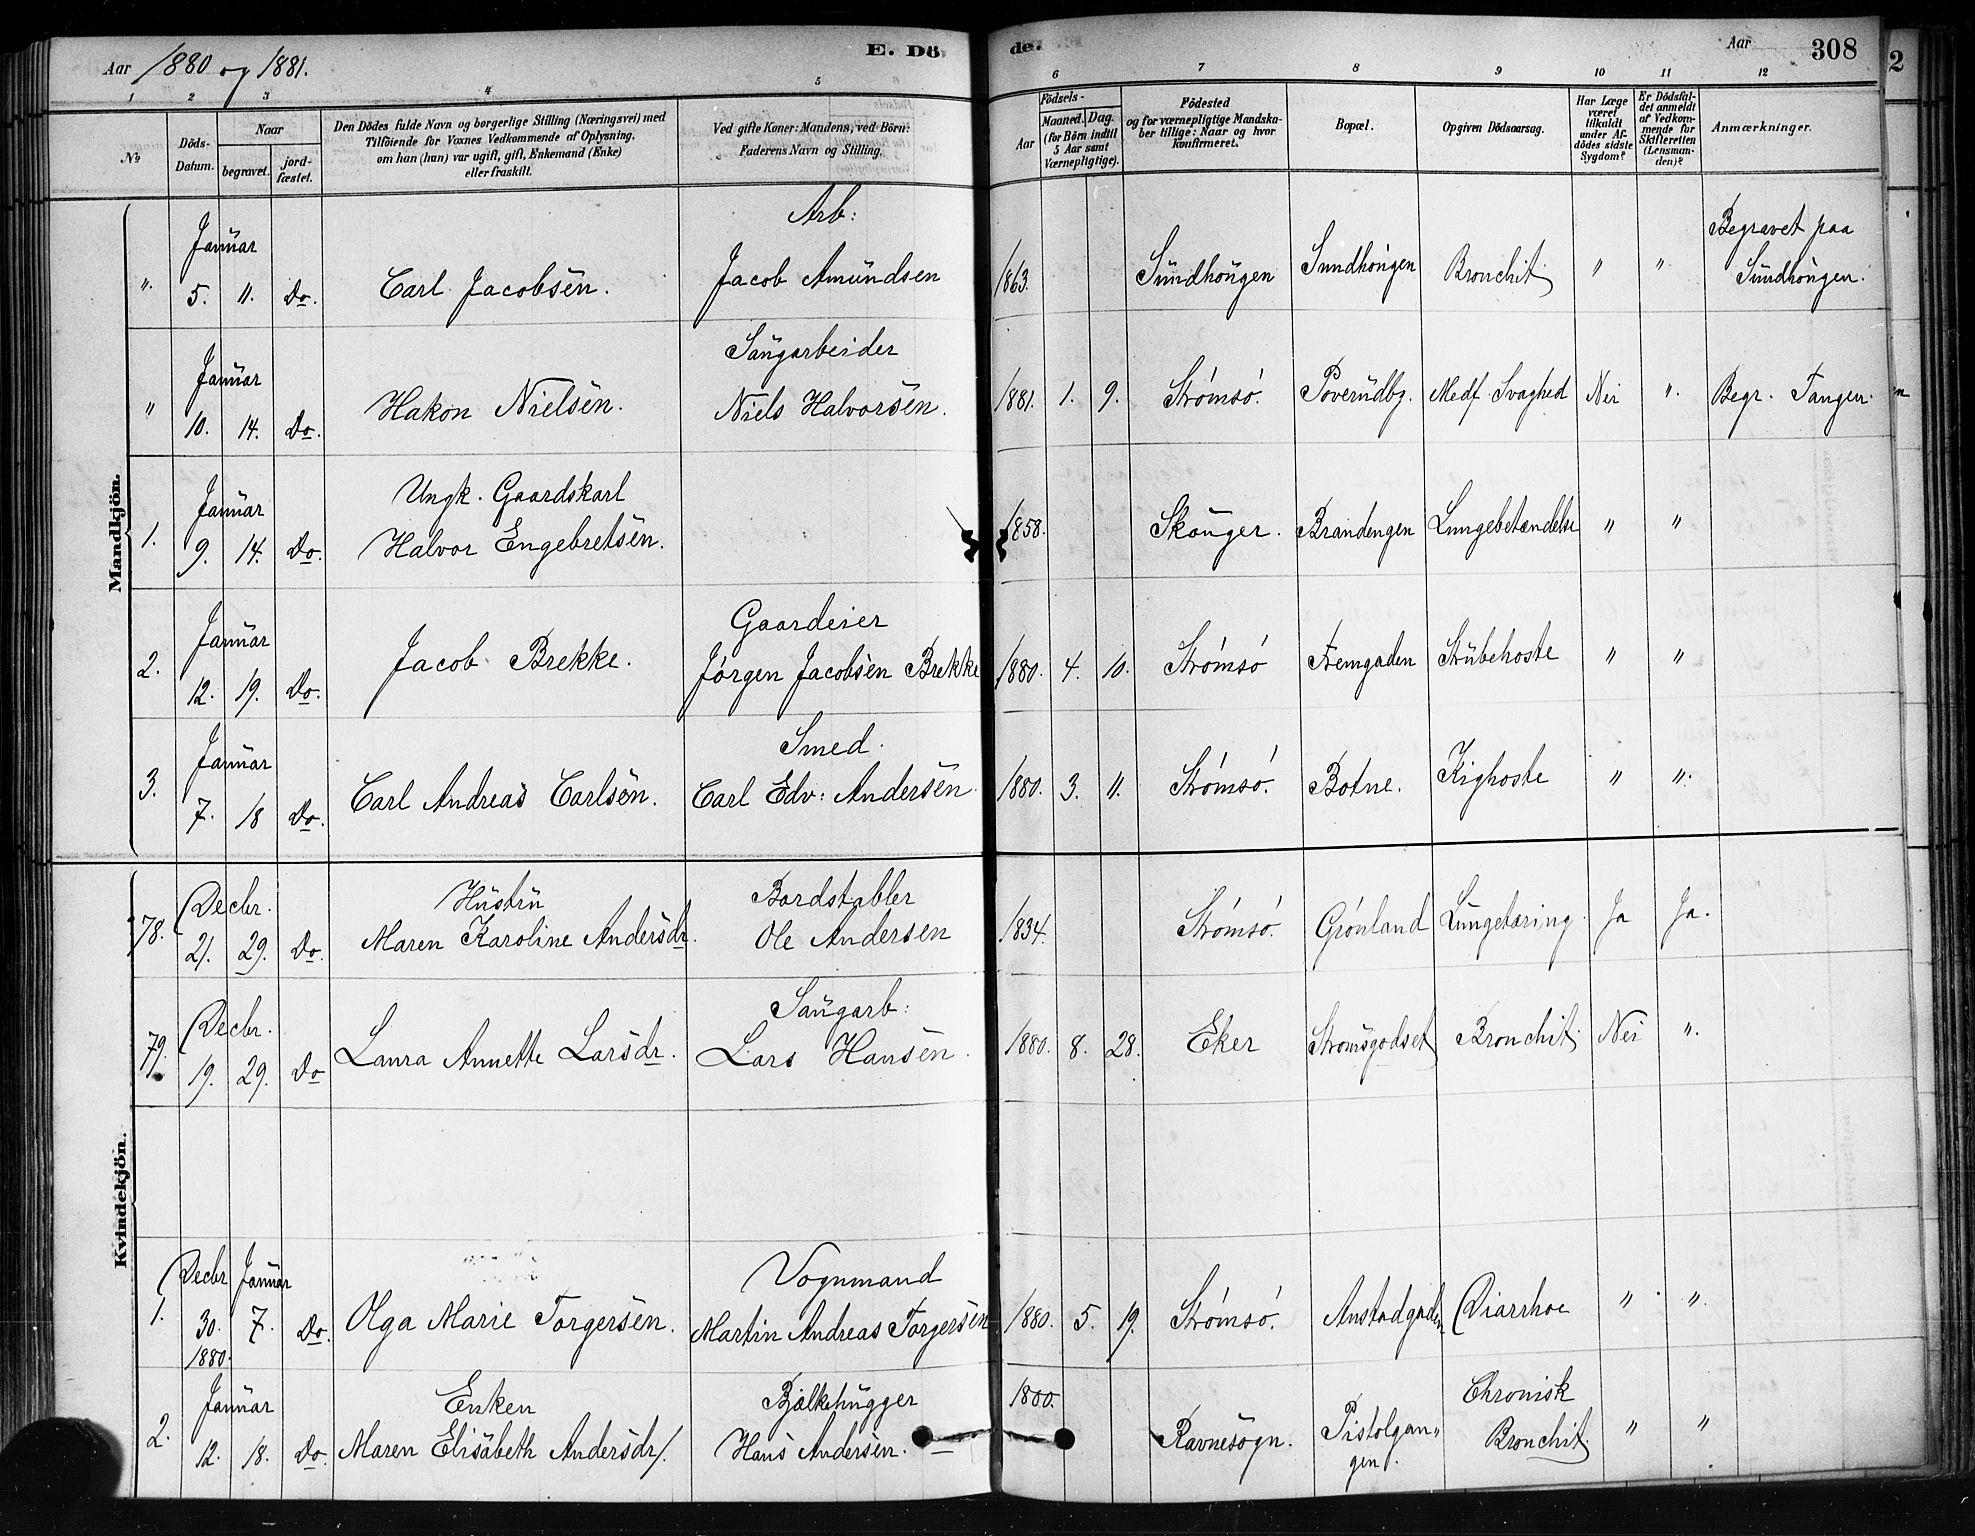 Aar 1880 og 1881. E. Dö de. Aar 308
2
1 2 3 4 5 6 7 8 9 10 11 12
No
Döds-Datum.
Naar
begravet.
jord-fæstet.
Den Dödes fulde Navn og borgerlige Stilling (Næringsvei) med
Tilföiende for Voxnes Vedkommende af Oplysning,
om han (hun) var ugift, gift, Enkemand (Enke)
eller fraskilt.
Ved gifte Koner: Mandens, ved Börn:
Faderens Navn og Stilling.
Födsels-
Aar
Maaned. Dag.
(for Börn indtil
5 Aar samt
Værnepligtige).
Födested
og for værnepligtige Mandska-
ber tillige: Naar og hvor
konfirmeret.
Bopæl.
Opgiven Dödsaarsag.
Har Læge
været
tilkaldt
under Af-
dödes sidste
Sygdom?
Er Dödsfal-
det anmeldt
af Vedkom-
mende for
Skifteretten
(Lensman-
den)?
Anmærkninger.
Mandkjön.
Januar Arb: Begravet paa
" 5. 11. Do. Carl Jacobsen. Jacob Amundsen 1863. Sundhougen Sundhougen Bronchit " " Sundhougen.
Januar Saugarbeider
" 10. 14. Do. Hakon Nielsen. Niels Halvorsen. 1881. 1. 9. Strømsø. Poverudbg. Medf. Svaghed Nei " Begr. Tangen.
Januar Ungk. Gaardskarl
1. 9. 14. Do. Halvor Engebretsen. 1858. Skouger. Brandengen Lungebetændelse " "
Januar Gaardeier
2. 12. 19. Do. Jacob Brekke. Jørgen Jacobsen Brekke 1880. 4. 10. Strømsø Fremgaden Strubehoste " "
Januar Smed.
3. 7. 18 Do. Carl Andreas Carlsen. Carl Edv: Andersen 1880. 3. 11. Strømsø. Botne. Kighoste " "
Kvindekjön.
Decbr. Hustru Bordstabler
78. 21. 29. Do. Maren Karoline Andersdr. Ole Andersen 1834. Strømsø. Grønland Lungetæring. Ja Ja.
Decbr. Saugarb:
79. 19. 29. Do Laura Annette Larsdr. Lars Hansen. 1880. 8. 28. Eker Strømsgodset Bronchit Nei "
Decbr Januar Vognmand
1. 30. 7. Do. Olga Marie Torgersen. Martin Andreas Torgersen 1880. 5. 19. Strømsø. Anstadgaden Diarrhoe " "
1880.
Januar Enken Bjælkehugger 1800. Chronisk
2. 12. 18. Do. Maren Elisabeth Andersdr. Hans Andersen. Ravnesogn. Pistolgan- Bronchit. " "
gen.